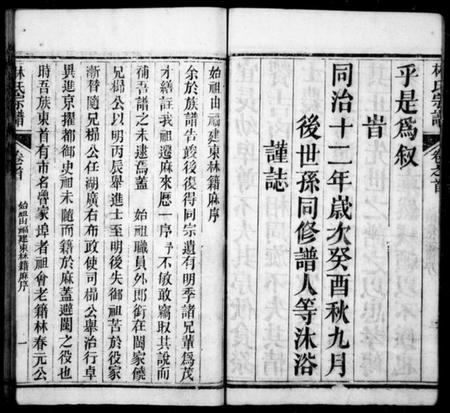 林氏宗譜
卷之首
乎是爲叙
旹
同治十二年歲次癸酉秋九月
後世孫同修譜人等沐浴
謹誌
始祖由福建東林籍麻序
余於族譜告竣後復得同宗遺有明季諸兄輩爲茂
才繕註我祖遷麻來歷一序予不敏敢竊取其說而
補吾譜之未逮焉蓋 始祖職員外郎銜在閩家饒
兄㮛公以明丙辰舉進士至明後失御祖苦於役家
漸替隨兄㮛公任湖廣右布政使司㮛公舉治行卓
異進京擢都御史祖未隨而籍於麻蓋避閩之役也
時吾族東首有市名魯家埠者祖會老籍林春元公
林氏宗譜
卷首
始祖由福建東林籍麻序
一